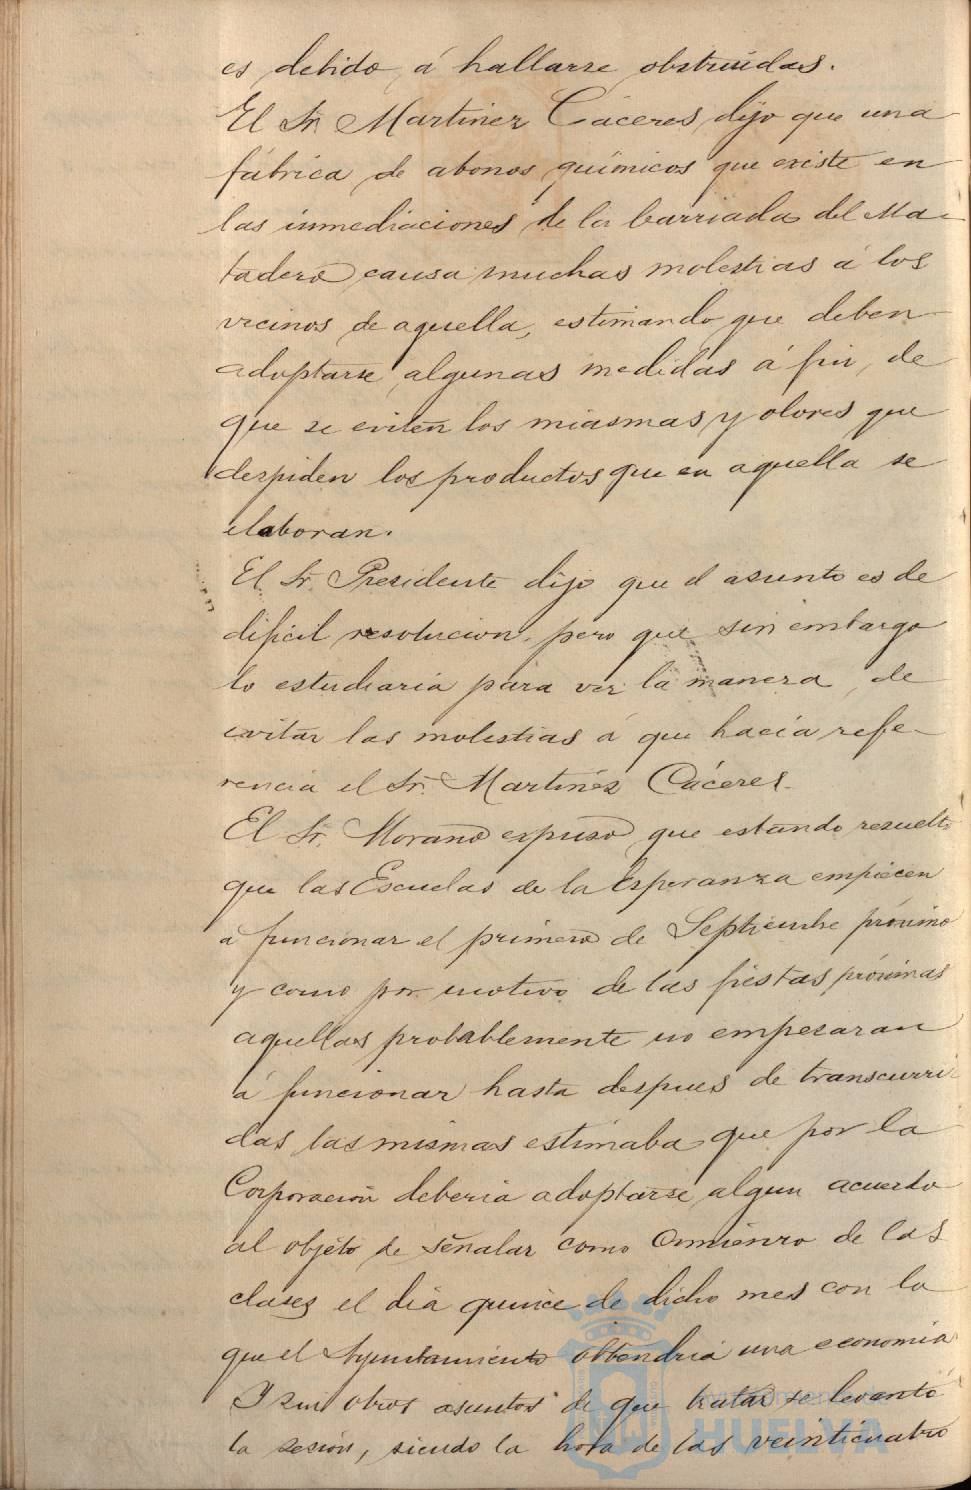 es debido á hallarse obstruidas.
El Sr. Martinez Cáceres dijo que una
fábrica de abonos químicos que existe en
las inmediaciones de la barriada del Ma-
tadero causa muchas molestias á los
vecinos de aquella, estimando que deben
adoptarse algunas medidas á fin, de
que se eviten los miasmas y olores que
despiden los productos que en aquella se
elaboran.
El Sr. Presidente dijo que el asunto es de
dificil resolucion, pero que sin embargo
lo estudiaria para ver la manera, de
evitar las molestias á que hacia refe-
rencia el Sr. Martinez Cáceres.
El Sr. Morano expuso que estando resuelto
que las Escuelas de la Esperanza empiecen
á funcionar el primero de Septiembre próximo
y como por motivo de las fiestas próximas
aquellas probablemente no empezaran
á funcionar hasta despues de transcurri-
das las mismas estimaba que por la
Corporación deberia adoptarse algun acuerdo
al objeto de señalar como Comienzo de las
clases el dia quince de dicho mes con lo
que el Ayuntamiento obtendria una economia
Y sin otros asuntos de que tratar se levantó
la sesión, siendo la hora de las veinticuatro
Ayuntamiento de
HUELVA